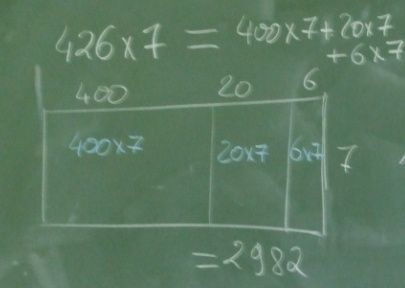 426×7 = 400×7+20×7
+6×7
400 20 6
400×7 20×7 6×7 7
=2982